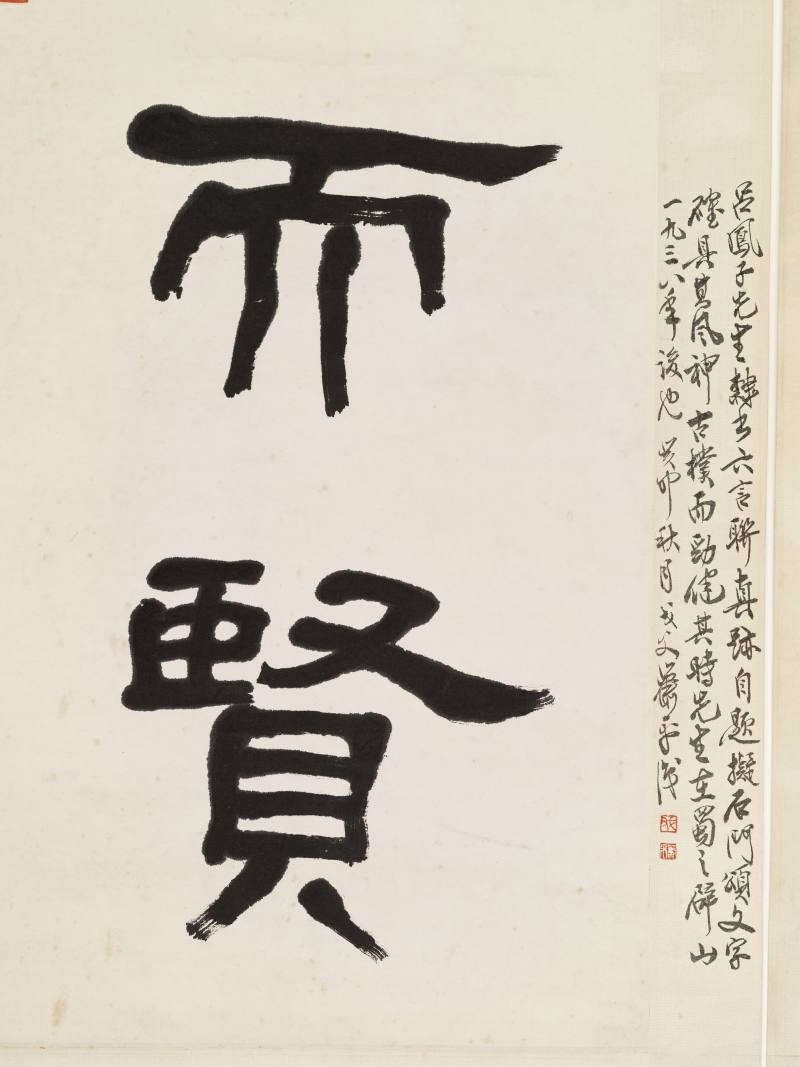 呂鳳子先生隸書六言聯真跡自題擬石門頌文字
確具其風神古樸而勁健其時先生在蜀之璧山
一九三八年後也 卯秋月戈父蕭平識
而賢